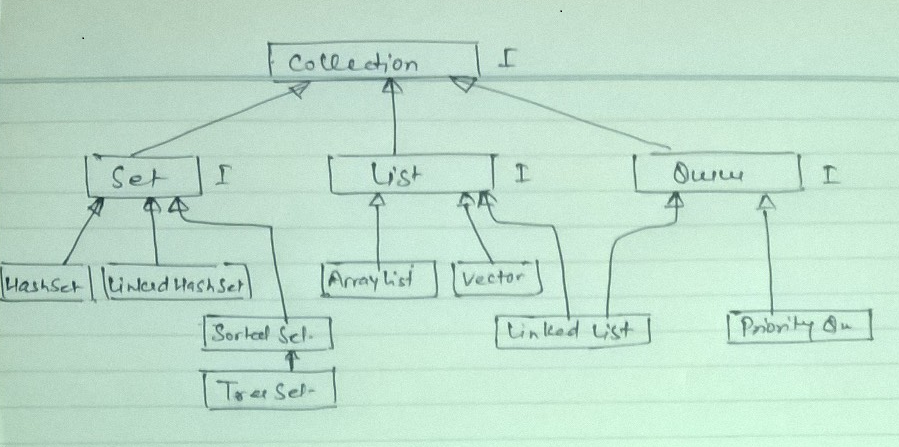 Collection I
Set I List I Queue I
HashSet LinkedHashSet ArrayList Vector
Sorted Set Linked List Priority Qu
Tree Set